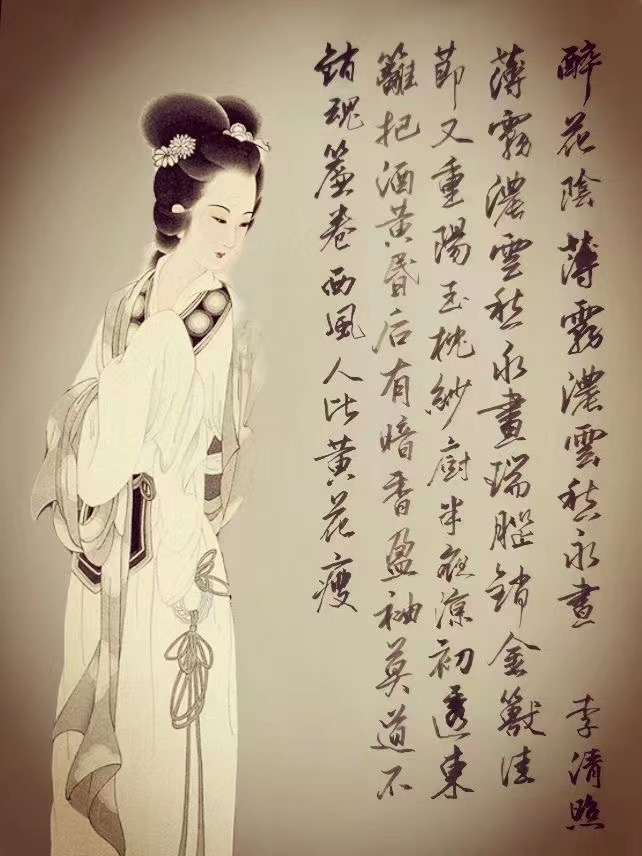 醉花陰 薄霧濃雲愁永晝 李清照
薄霧濃雲愁永晝瑞腦銷金獸佳
節又重陽玉枕紗廚半夜涼初透東
籬把酒黃昏后有暗香盈袖莫道不
銷魂簾卷西風人比黃花瘦